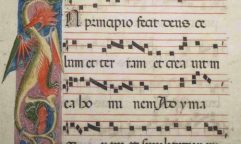 N principio fecit deus ce
lum et ter ram et crea uit in
ea ho mi nem Ad y ma
ram et